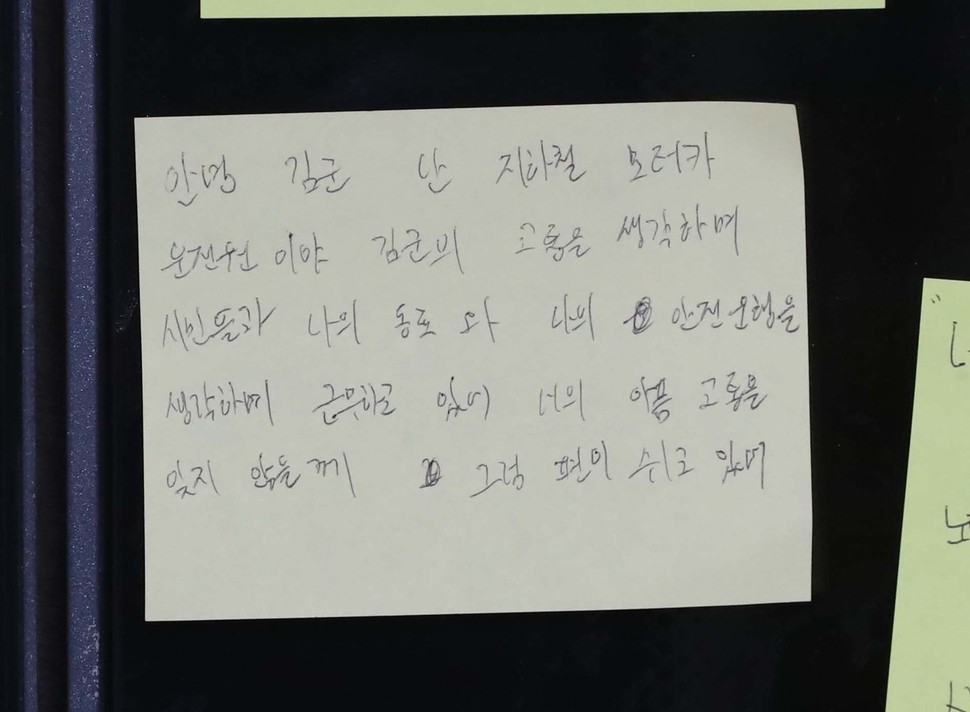 안녕 김군 난 지하철 모터카
운전원 이야 김군의 고통을 생각하며
시민들과 나의 동료 와 나의 안전운행을
생각하며 근무하고 있어 너의 아픔 고통을
잊지 않을께 그럼 편이 쉬고 있어